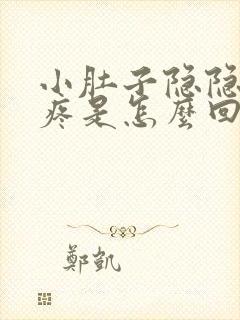 小肚子隐隐
疼是怎麼回
鄭凱